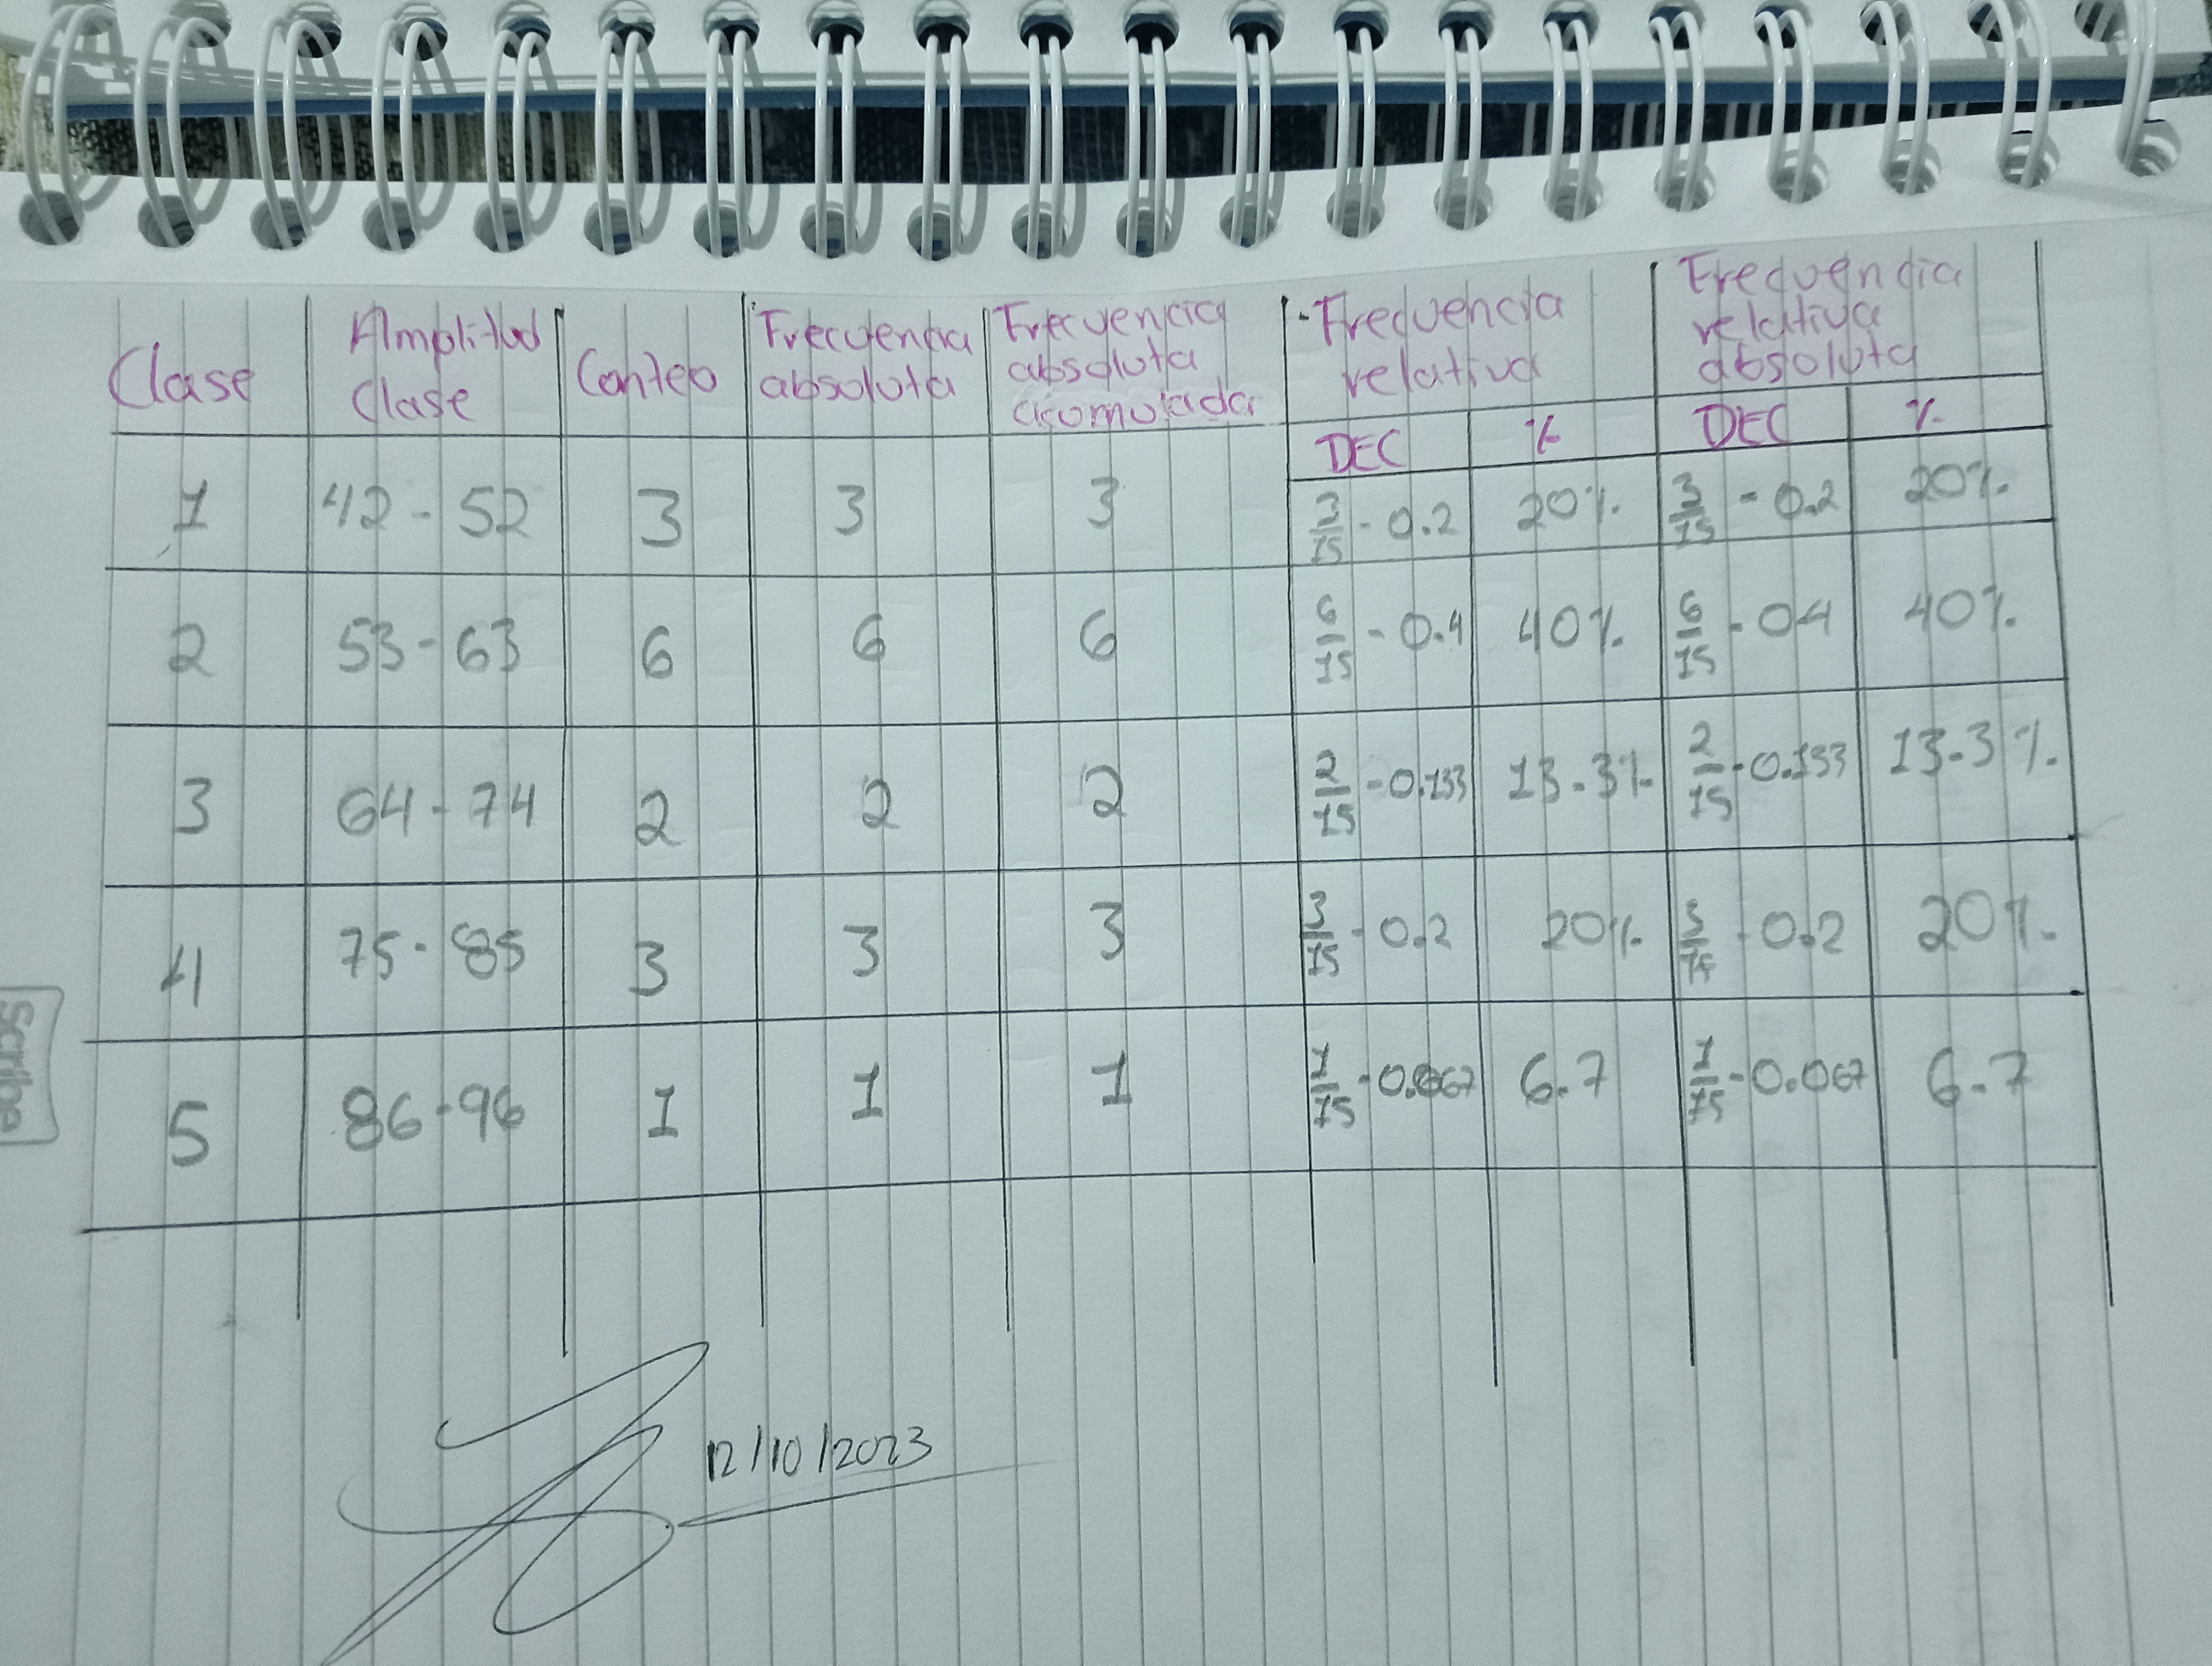 Clase Amplitud Clase Conteo Frecuencia absoluta Frecuencia absoluta acomulada Frecuencia relativa Frecuencia relativa absoluta
DEC % DEC %
1 42 - 52 3 3 3 3/15 - 0.2 20% 3/15 - 0.2 20%
2 53 - 63 6 6 6 6/15 - 0.4 40% 6/15 - 04 40%
3 64 - 74 2 2 2 2/15 - 0.133 13.3% 2/15 - 0.133 13.3%
4 75 - 85 3 3 3 3/15 - 0.2 20% 3/15 - 0.2 20%
5 86 - 96 1 1 1 1/15 - 0.067 6.7 1/15 - 0.067 6.7
12/10/2023
Scribe